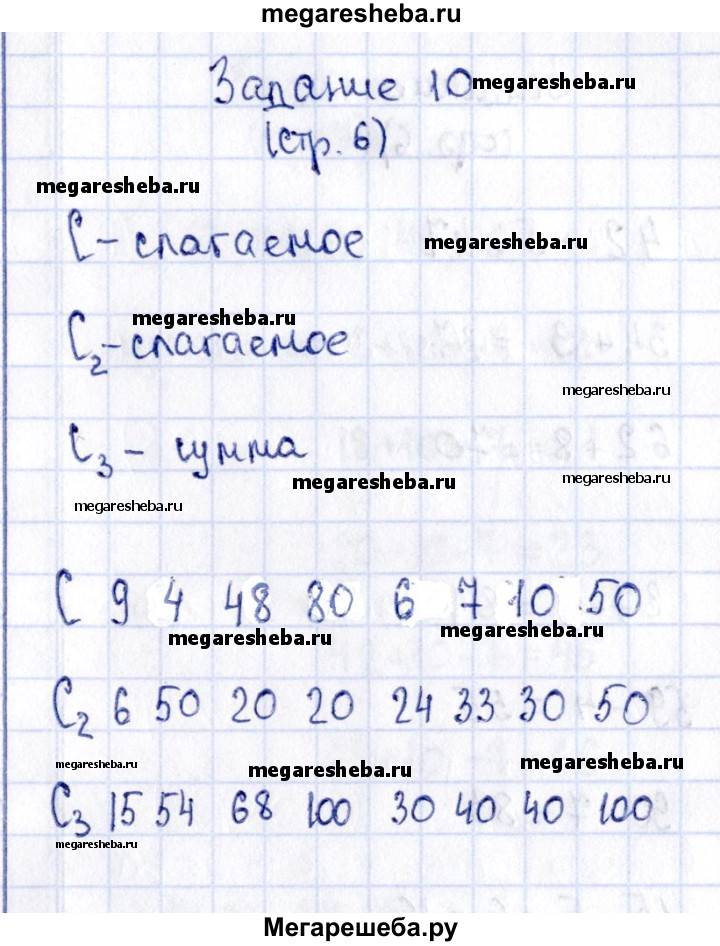 megaresheba.ru
Задание 10 megaresheba.ru
(стр. 6)
megaresheba.ru
С - слагаемое megaresheba.ru
megaresheba.ru
С2 - слагаемое
megaresheba.ru
С3 - сумма
megaresheba.ru megaresheba.ru
megaresheba.ru
С 9 4 48 80 6 7 10 50
megaresheba.ru megaresheba.ru
С2 6 50 20 20 24 33 30 50
megaresheba.ru megaresheba.ru megaresheba.ru
С3 15 54 68 100 30 40 40 100
megaresheba.ru
Мегарешеба.ру